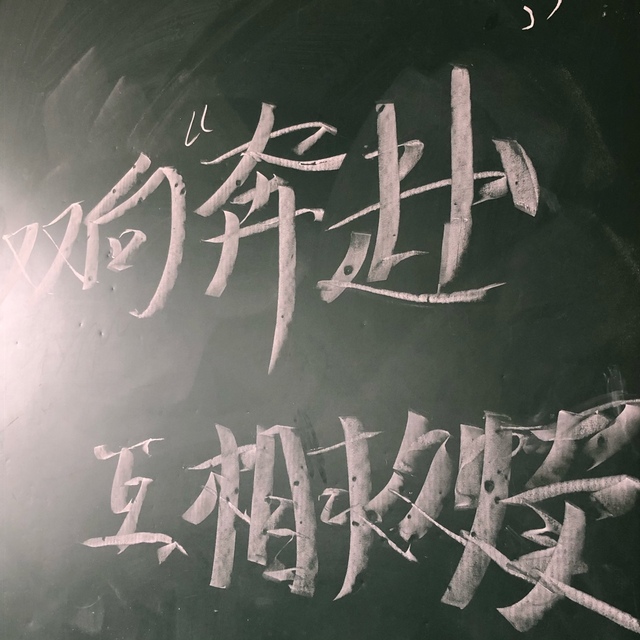 双向“奔赴”
互相救